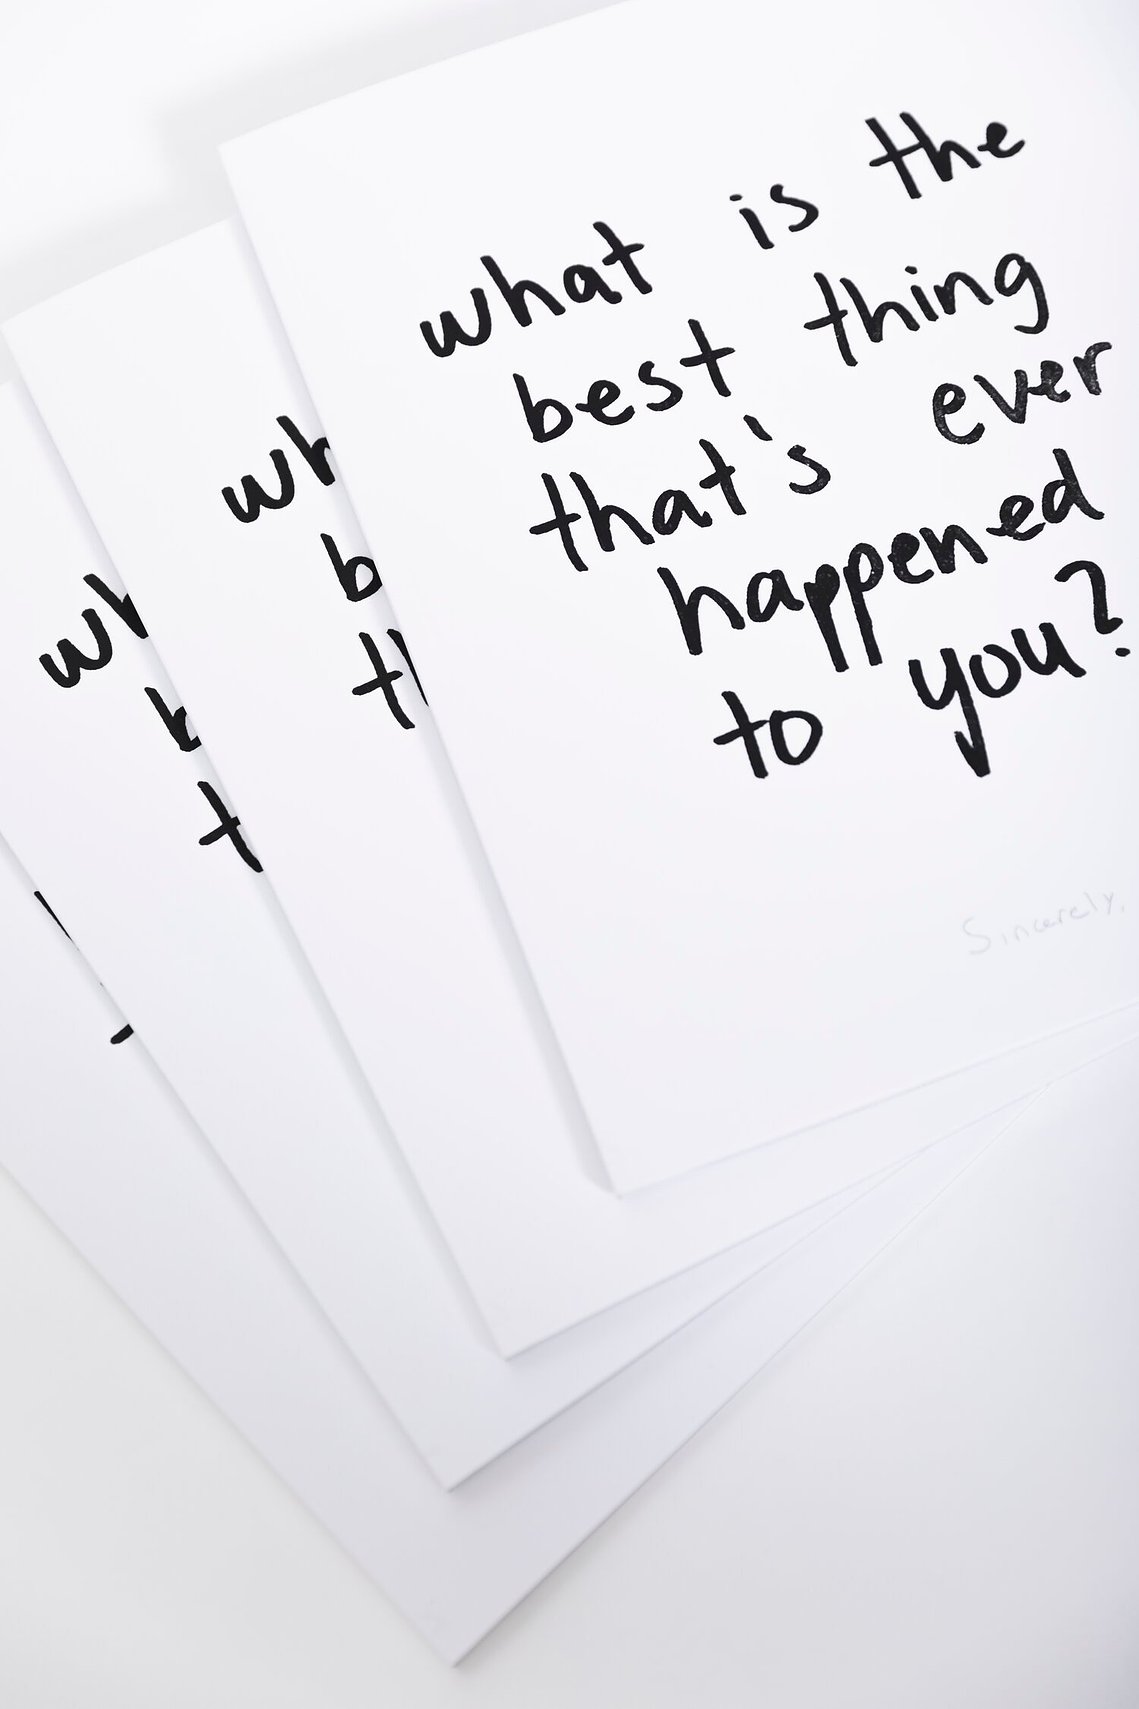 what is the
best thing
that's ever
happened
to you?
Sincerely,
wh
b
th
wh
b
t